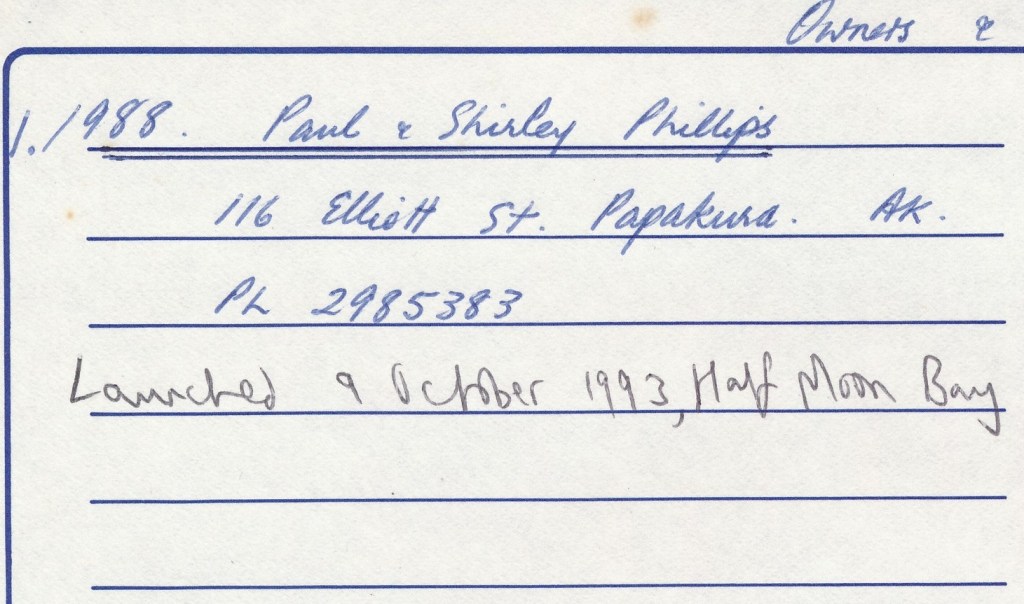 Owners &
1. 1988. Paul & Shirley Phillips
116 Elliott St. Papakura. AK.
Ph 2985383
Launched 9 October 1993, Half Moon Bay